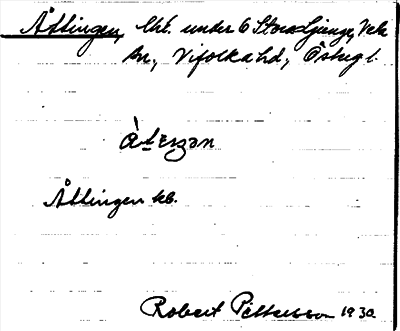 Åttingen, lht. under 6 Stora Ljunge, Vck
sn, Vifolka hd, Östergl.
Åttingen kb.
Robert Pettersson 1930